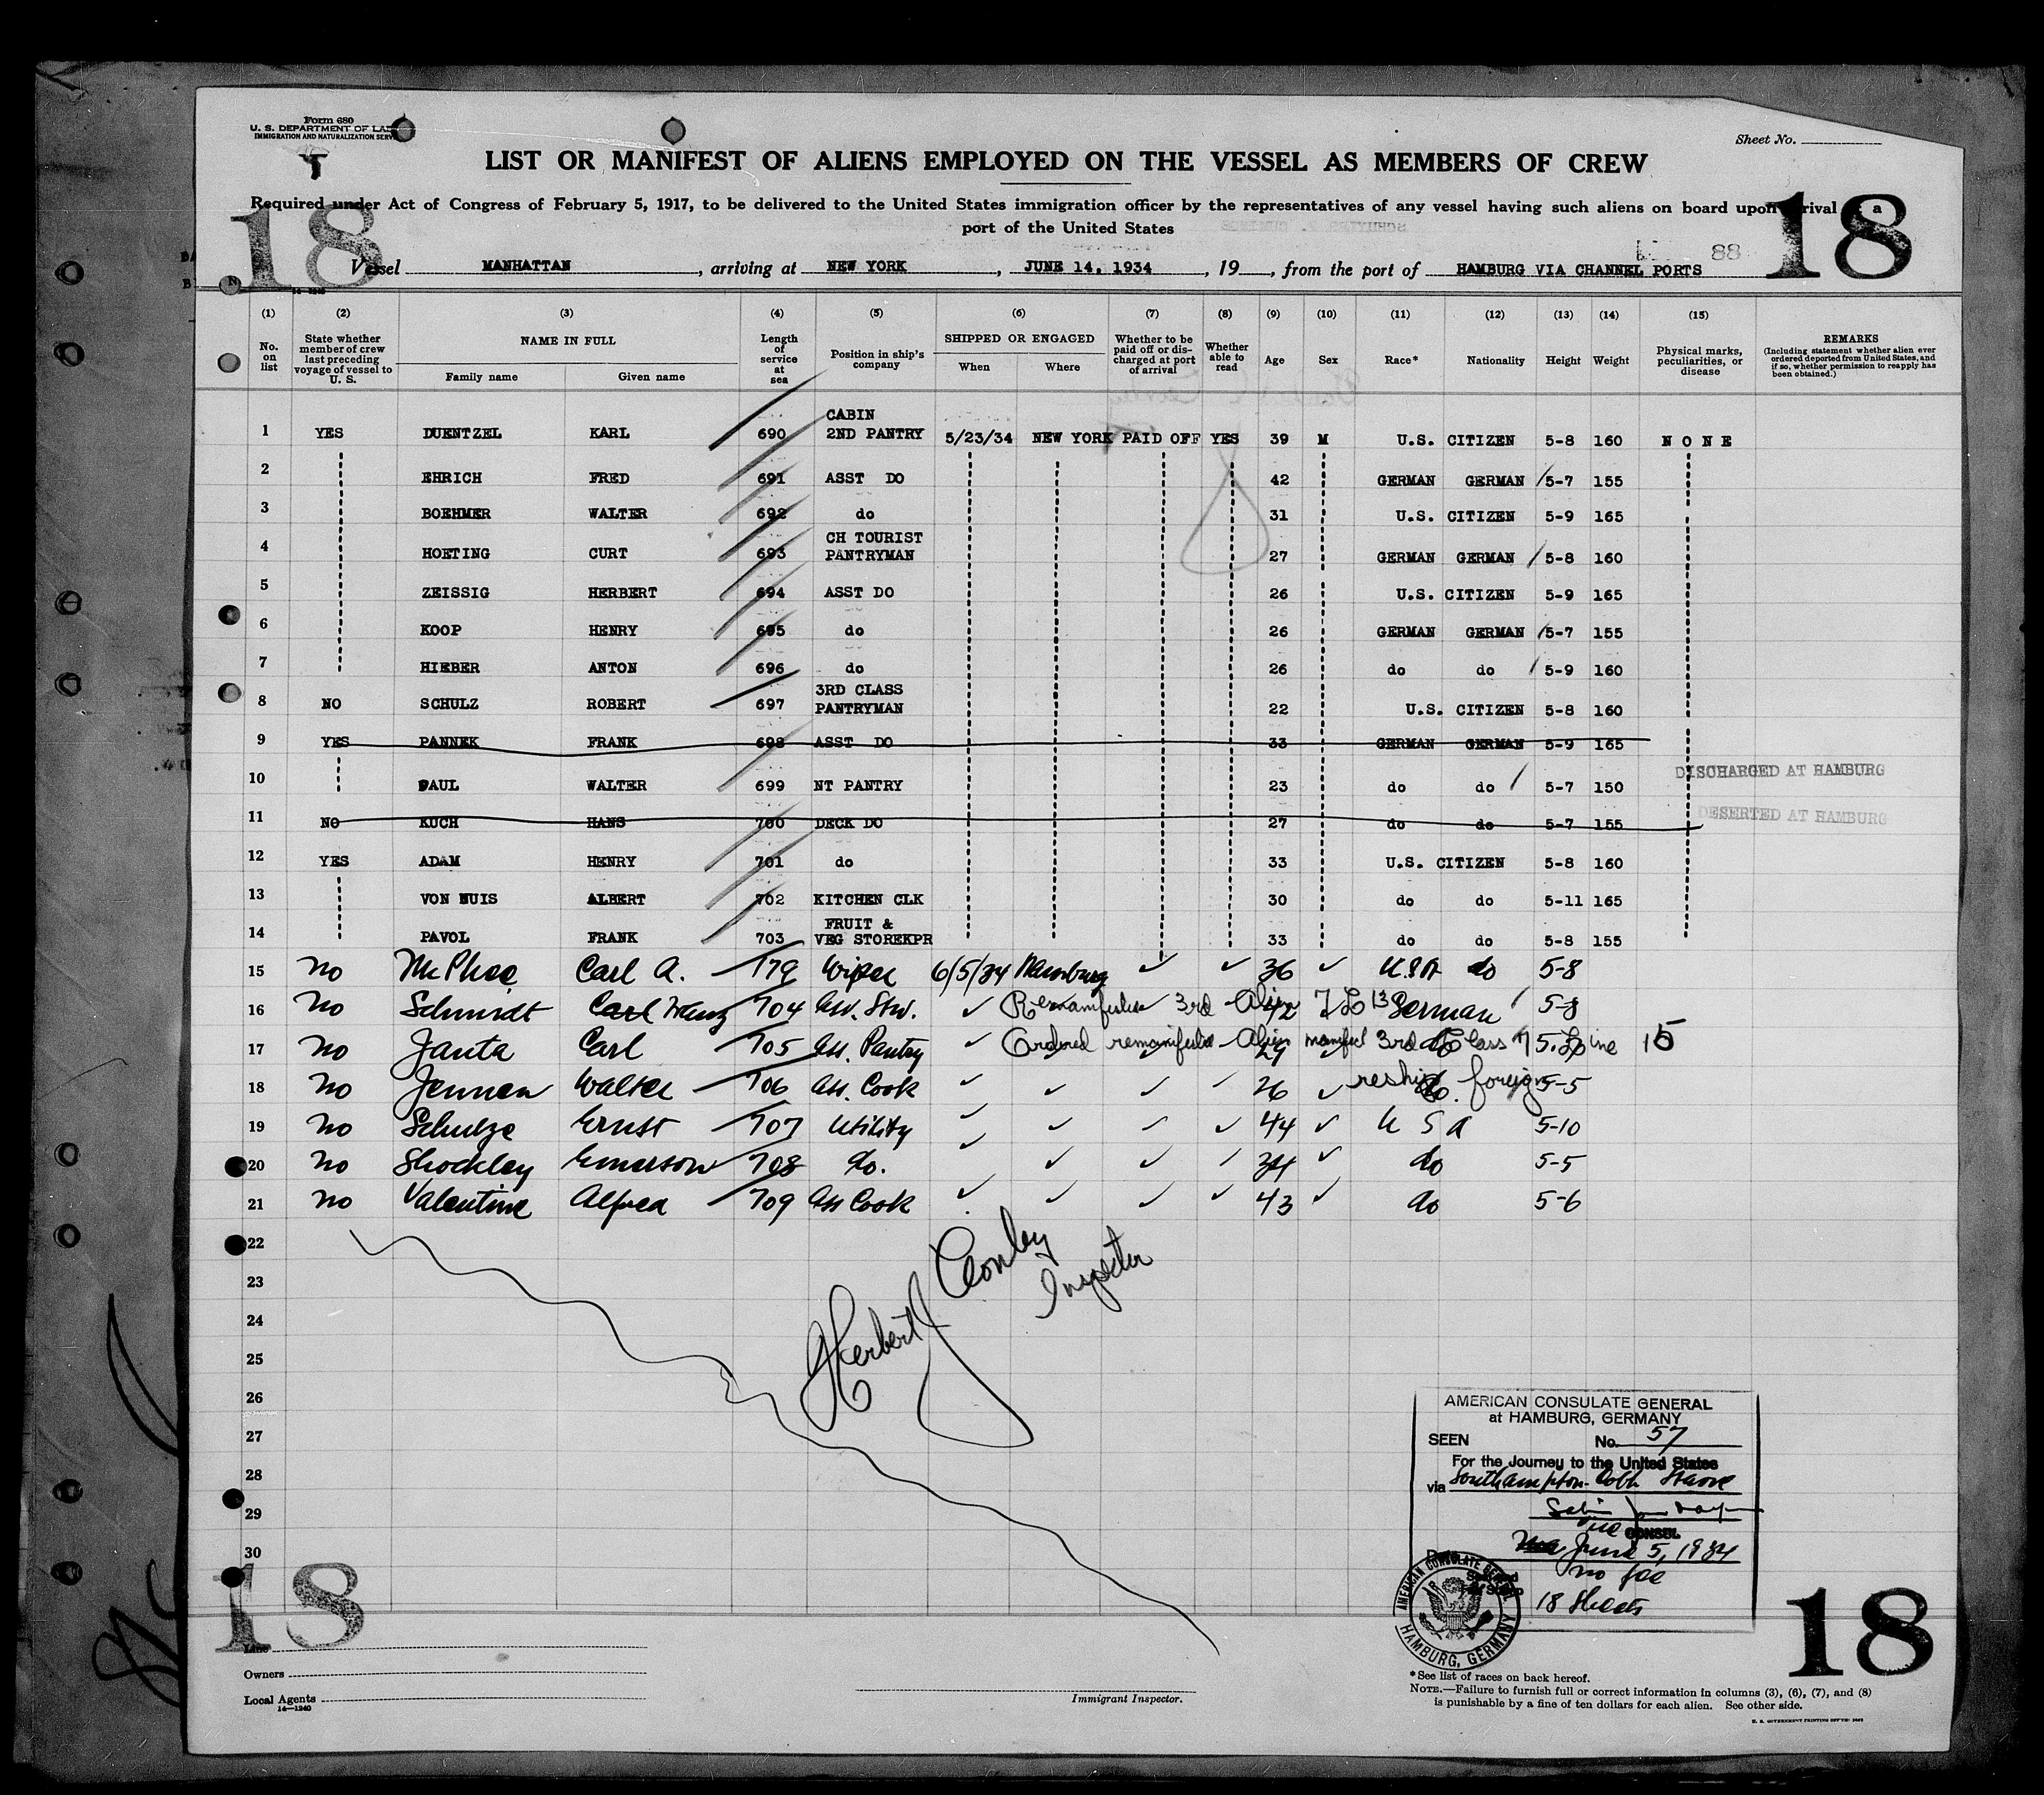 Form 680
U. S. DEPARTMENT OF LA
IMMIGRATION AND NATURALIZATION SERV
Sheet No.
LIST OR MANIFEST OF ALIENS EMPLOYED ON THE VESSEL AS MEMBERS OF CREW
Required under Act of Congress of February 5, 1917, to be delivered to the United States immigration officer by the representatives of any vessel having such aliens on board upon arrival a
port of the United States
18 18
88
Vessel MANHATTAN, arriving at NEW YORK, JUNE 14, 1934, 19, from the port of HAMBURG VIA CHANNEL PORTS
(1) (2) (3) (4) (5) (6) (7) (8) (9) (10) (11) (12) (13) (14) (15)
No. on list State whether member of crew last preceding voyage of vessel to U. S. NAME IN FULL Family name Given name Length of service at sea Position in ship's company SHIPPED OR ENGAGED When Where Whether to be paid off or discharged at port of arrival Whether able to read Age Sex Race* Nationality Height Weight Physical marks, peculiarities, or disease REMARKS (Including statement whether alien ever ordered deported from United States, and if so, whether permission to reapply has been obtained.)
1 YES DUENTZEL KARL 690 CABIN 2ND PANTRY 5/23/34 NEW YORK PAID OFF YES 39 M U.S. CITIZEN 5-8 160 NONE
2 EHRICH FRED 691 ASST DO 42 GERMAN GERMAN 5-7 155
3 BOEHMER WALTER 692 do 31 U.S. CITIZEN 5-9 165
4 HOETING CURT 693 CH TOURIST PANTRYMAN 27 GERMAN GERMAN 5-8 160
5 ZEISSIG HERBERT 694 ASST DO 26 U.S. CITIZEN 5-9 165
6 KOOP HENRY 695 do 26 GERMAN GERMAN 5-7 155
7 HIEBER ANTON 696 do 26 do do 5-9 160
8 NO SCHULZ ROBERT 697 3RD CLASS PANTRYMAN 22 U.S. CITIZEN 5-8 160
9 YES PANNEK FRANK 698 ASST DO 33 GERMAN GERMAN 5-9 165
DISCHARGED AT HAMBURG
10 PAUL WALTER 699 NT PANTRY 23 do do 5-7 150
11 NO KUCH HANS 700 DECK DO 27 do do 5-7 155 DESERTED AT HAMBURG
12 YES ADAM HENRY 701 do 33 U.S. CITIZEN 5-8 160
13 VON HUIS ALBERT 702 KITCHEN CLK 30 do do 5-11 165
14 PAVOL FRANK 703 FRUIT & VEG STOREKPR 33 do do 5-8 155
15 no McPhee Carl A. 179 Wiper 6/5/34 Hamburg ✓ ✓ 36 ✓ U.S.A do 5-8
16 no Schmidt Carl Franz 704 Ass. Stw. ✓ Remanifested 3rd Alien 42 13 German 5-8
17 no Janta Carl 705 Ass. Pantry ✓ Ordered remanifested Alien manifest 29 3rd Class Line 15
18 no Jennen Walter 706 Ass. Cook ✓ ✓ ✓ 26 ✓ reship foreign do. 5-5
19 no Schulze Ernst 707 Utility ✓ ✓ ✓ ✓ 44 ✓ U S A 5-10
20 no Shockley Emerson 708 do. ✓ ✓ ✓ 34 ✓ do 5-5
21 no Valentine Alfred 709 Ass Cook ✓ ✓ ✓ ✓ 43 ✓ do 5-6
22
23
24
25
26
27
28
29
30
Herbert J Conley
Inspector
AMERICAN CONSULATE GENERAL
at HAMBURG, GERMANY
SEEN No. 57
For the Journey to the United States
via Southampton Cobh Havre
CONSUL
June 5, 1934
no fee
18 Sheets
AMERICAN CONSULATE GENERAL HAMBURG, GERMANY
18 18
Line
Owners
Local Agents
14—1240
Immigrant Inspector.
*See list of races on back hereof.
NOTE.—Failure to furnish full or correct information in columns (3), (6), (7), and (8)
is punishable by a fine of ten dollars for each alien. See other side.